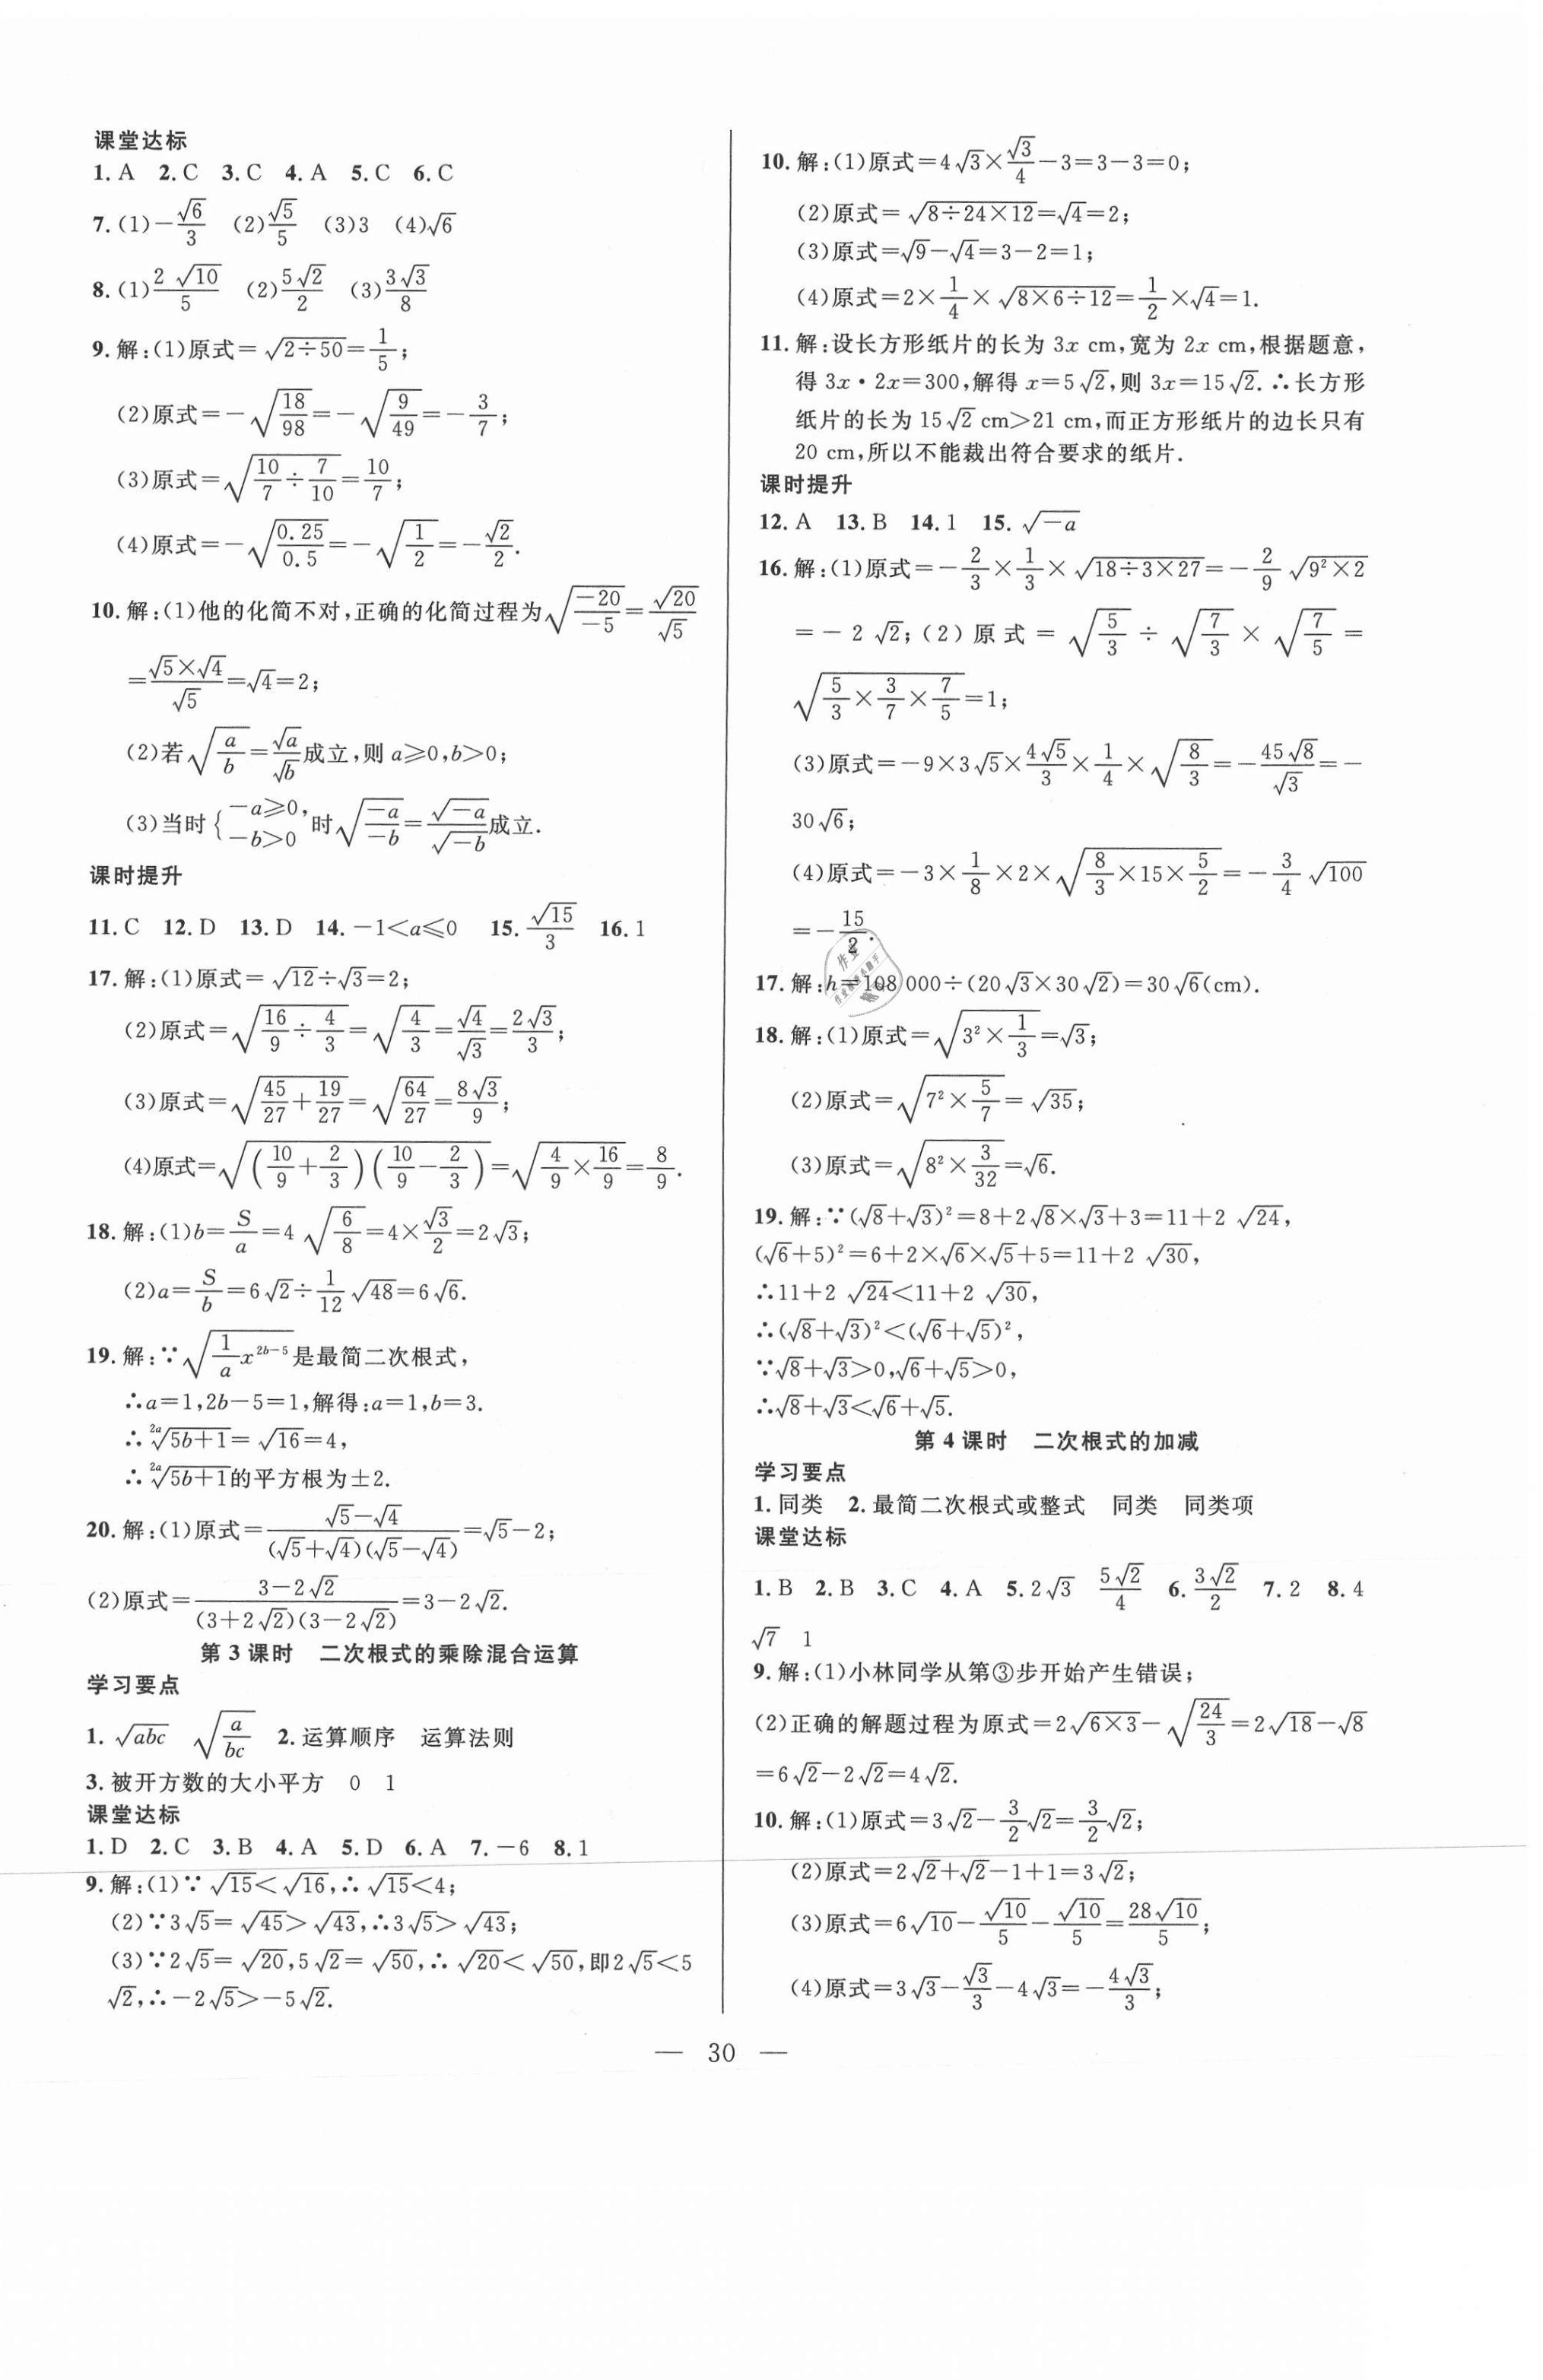 课堂达标
1. A 2. C 3. C 4. A 5. C 6. C
7. (1)−√6/3 (2)√5/5 (3)3 (4)√6
8. (1)2√10/5 (2)5√2/2 (3)3√3/8
9. 解:(1)原式=√(2÷50)=1/5;
(2)原式=−√(18/98)=−√(9/49)=−3/7;
(3)原式=√(10/7÷7/10)=10/7;
(4)原式=−√(0.25/0.5)=−√(1/2)=−√2/2.
10. 解:(1)他的化简不对,正确的化简过程为√(−20/−5)=√20/√5
=√5×√4/√5=√4=2;
(2)若√(a/b)=√a/√b成立,则 a≥0,b>0;
(3)当时{−a≥0, −b>0 时√(−a/−b)=√(−a)/√(−b)成立.
课时提升
11. C 12. D 13. D 14. −1<a≤0 15. √15/3 16. 1
17. 解:(1)原式=√12÷√3=2;
(2)原式=√(16/9÷4/3)=√(4/3)=√4/√3=2√3/3;
(3)原式=√(45/27+19/27)=√(64/27)=8√3/9;
(4)原式=√((10/9+2/3)(10/9−2/3))=√(4/9×16/9)=8/9.
18. 解:(1)b=S/a=4√(6/8)=4×√3/2=2√3;
(2)a=S/b=6√2÷1/12√48=6√6.
19. 解:∵√(1/a x^(2b−5))是最简二次根式,
∴a=1,2b−5=1,解得:a=1,b=3.
∴ ²ᵃ√(5b+1)=√16=4,
∴ ²ᵃ√(5b+1)的平方根为±2.
20. 解:(1)原式=(√5−√4)/((√5+√4)(√5−√4))=√5−2;
(2)原式=(3−2√2)/((3+2√2)(3−2√2))=3−2√2.
第 3 课时 二次根式的乘除混合运算
学习要点
1. √(abc) √(a/bc) 2. 运算顺序 运算法则
3. 被开方数的大小平方 0 1
课堂达标
1. D 2. C 3. B 4. A 5. D 6. A 7. −6 8. 1
9. 解:(1)∵√15<√16,∴√15<4;
(2)∵3√5=√45>√43,∴3√5>√43;
(3)∵2√5=√20,5√2=√50,∴√20<√50,即2√5<5
√2,∴−2√5>−5√2.
10. 解:(1)原式=4√3×√3/4−3=3−3=0;
(2)原式=√(8÷24×12)=√4=2;
(3)原式=√9−√4=3−2=1;
(4)原式=2×1/4×√(8×6÷12)=1/2×√4=1.
11. 解:设长方形纸片的长为 3x cm,宽为 2x cm,根据题意,
得 3x·2x=300,解得 x=5√2,则 3x=15√2. ∴长方形
纸片的长为 15√2 cm>21 cm,而正方形纸片的边长只有
20 cm,所以不能裁出符合要求的纸片.
课时提升
12. A 13. B 14. 1 15. √(−a)
16. 解:(1)原式=−2/3×1/3×√(18÷3×27)=−2/9√(9²×2)
=−2√2;(2)原式=√(5/3)÷√(7/3)×√(7/5)=
√(5/3×3/7×7/5)=1;
(3)原式=−9×3√5×4√5/3×1/4×√(8/3)=−45√8/√3=−
30√6;
(4)原式=−3×1/8×2×√(8/3×15×5/2)=−3/4√100
=−15/2.
17. 解:h=108 000÷(20√3×30√2)=30√6(cm).
18. 解:(1)原式=√(3²×1/3)=√3;
(2)原式=√(7²×5/7)=√35;
(3)原式=√(8²×3/32)=√6.
19. 解:∵(√8+√3)²=8+2√8×√3+3=11+2√24,
(√6+5)²=6+2×√6×√5+5=11+2√30,
∴11+2√24<11+2√30,
∴(√8+√3)²<(√6+√5)²,
∵√8+√3>0,√6+√5>0,
∴√8+√3<√6+√5.
第 4 课时 二次根式的加减
学习要点
1. 同类 2. 最简二次根式或整式 同类 同类项
课堂达标
1. B 2. B 3. C 4. A 5. 2√3 5√2/4 6. 3√2/2 7. 2 8. 4
√7 1
9. 解:(1)小林同学从第③步开始产生错误;
(2)正确的解题过程为原式=2√(6×3)−√(24/3)=2√18−√8
=6√2−2√2=4√2.
10. 解:(1)原式=3√2−3/2√2=3/2√2;
(2)原式=2√2+√2−1+1=3√2;
(3)原式=6√10−√10/5−√10/5=28√10/5;
(4)原式=3√3−√3/3−4√3=−4√3/3;
— 30 —